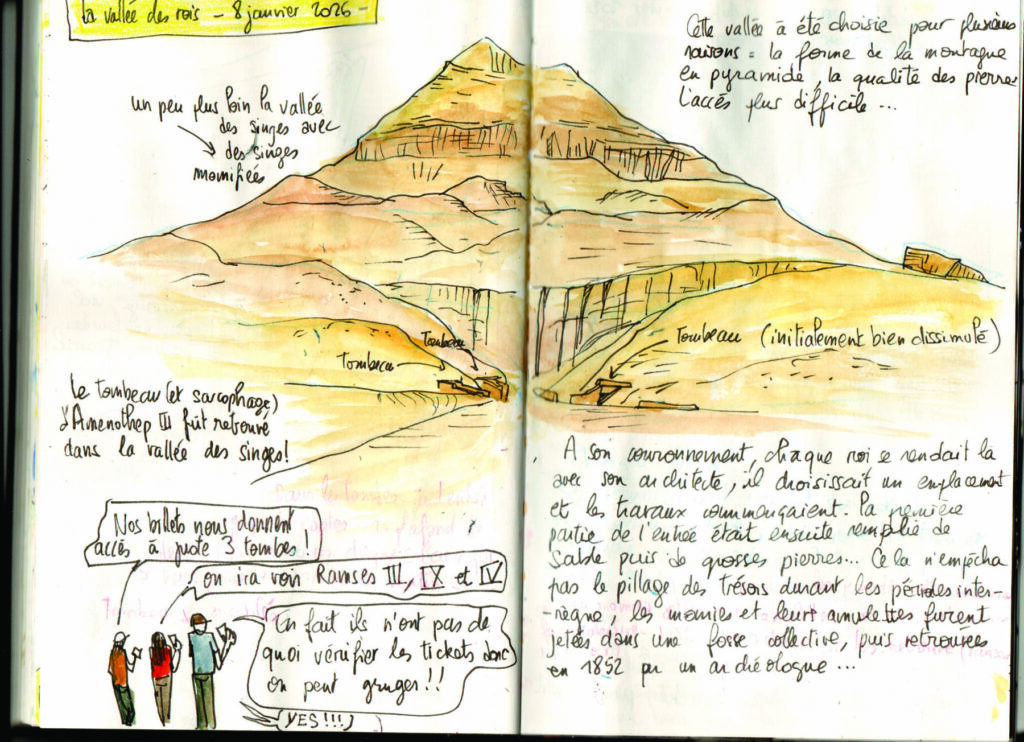 la vallée des rois - 8 janvier 2026 -
Cette vallée a été choisie pour plusieurs
raisons : la forme de la montagne
en pyramide, la qualité des pierres
l'accés plus difficile ...
un peu plus loin la vallée
des singes avec
des singes
momifiés
Tombeau
Tombeau
Tombeau (initialement bien dissimulé)
Le tombeau (et sarcophage)
d'Amenothep III fût retrouvé
dans la vallée des singes!
A son couronnement, chaque roi se rendait là
avec son architecte, il choisissait un emplacement
et les travaux commençaient. La première
partie de l'entrée était ensuite remplie de
Sable puis de grosses pierres... Cela n'empêcha
pas le pillage des trésors durant les périodes inter-
-règne, les momies et leurs amulettes furent
jetées dans une fosse collective, puis retrouvées
en 1892 par un archéologue ...
Nos billets nous donnent
accès à juste 3 tombes !
on ira voir Ramses III, IX et IV
En fait ils n'ont pas de
quoi vérifier les tickets donc
on peut gruger !!
YES !!!